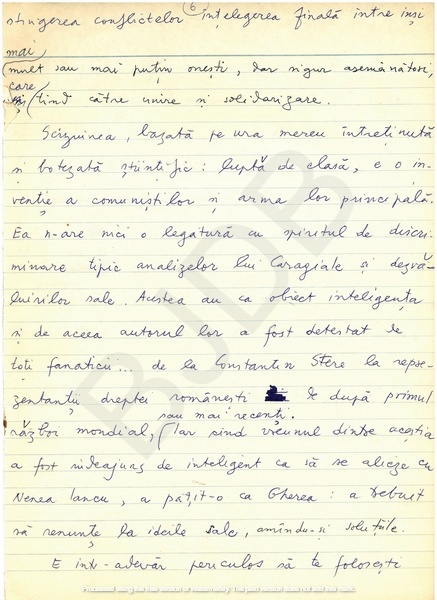 6
stingerea conflictelor înțelegerea finală între inși
mai
mult sau mai puțin onești, dar sigur asemănători,
care
tind către unire și solidarizare.
Sciziunea, bazată pe ura mereu întreținută
și botezată științific: luptă de clasă, e o in-
venție a comuniștilor și arma lor principală.
Ea n-are nici o legătură cu spiritul de discri-
minare tipic analizelor lui Caragiale și dezvă-
luirilor sale. Acestea au ca obiect inteligența
și de aceea autorul lor a fost detestat de
toți fanaticii... de la Constantin Stere la repre-
zentanții dreptei românești de după primul
sau mai recenți.
război mondial, Iar cînd vreunul dintre aceștia
a fost îndeajuns de inteligent ca să se alieze cu
Nenea Iancu, a pățit-o ca Gherea: a trebuit
să renunțe la ideile sale, amîndu-și soluțiile.
E într-adevăr periculos să te folosești
BJDB
Processed using the free version of Watermarkly. The paid version does not add this mark.